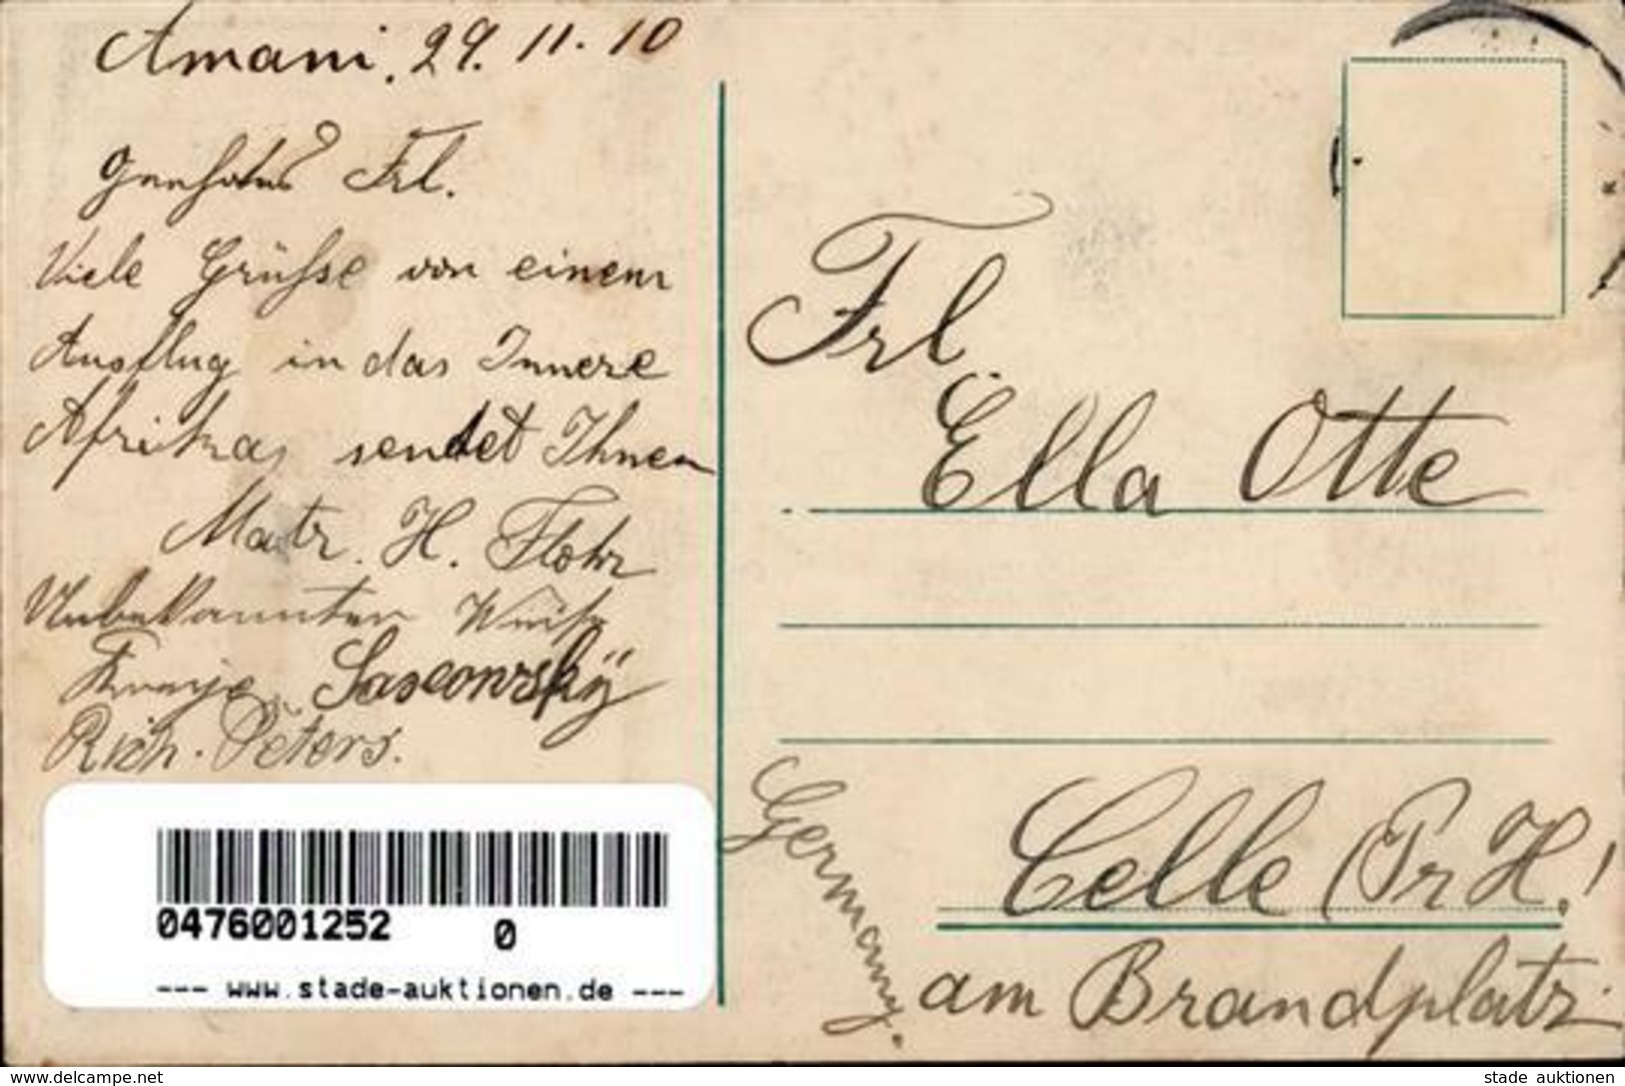 Amani, 29. 11. 10
Geehrtes Frl.
Viele Grüsse von einem
Ausflug in das Innere
Afrikas sendet Ihnen
Matr. H. Flohr
Unbekannter Weise
Sascowsky
Rich. Peters.
Frl.
Ella Otte
Celle (Pr H.!
am Brandplatz.
Germany.
0476001252 0
--- www.stade-auktionen.de ---
www.delcampe.net
stade auktionen